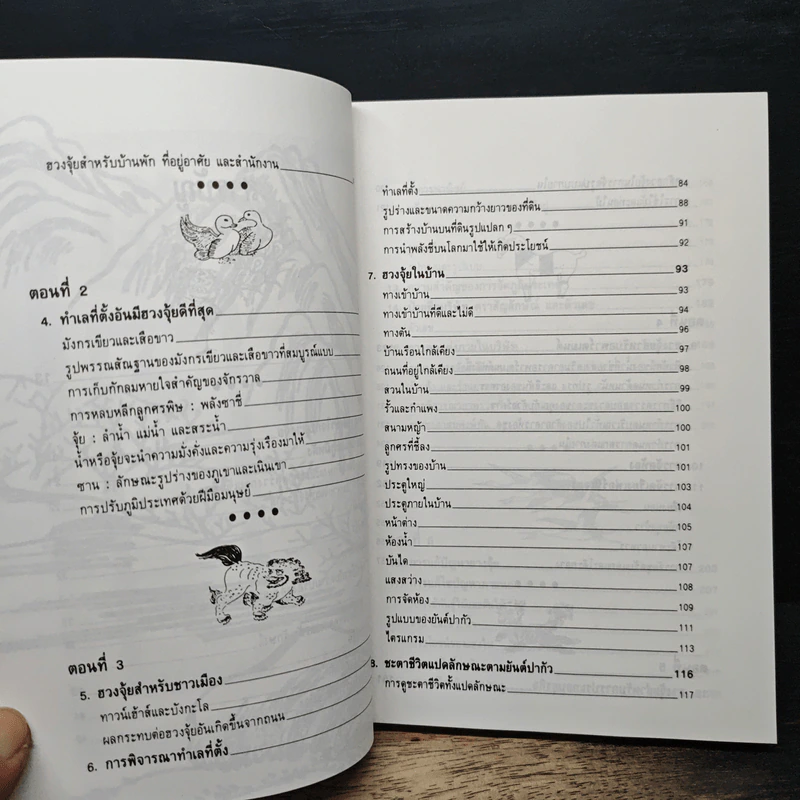 ฮวงจุ้ยสำหรับบ้านพัก ที่อยู่อาศัย และสำนักงาน
ตอนที่ 2
4. ทำเลที่ตั้งอันมีฮวงจุ้ยดีที่สุด
มังกรเขียวและเสือขาว
รูปพรรณสัณฐานของมังกรเขียวและเสือขาวที่สมบูรณ์แบบ
การเก็บกักลมหายใจสำคัญของจักรวาล
การหลบหลีกลูกศรพิษ : พลังซาชี่
จุ้ย : ลำน้ำ แม่น้ำ และสระน้ำ
น้ำหรือจุ้ยจะนำความมั่งคั่งและความรุ่งเรืองมาให้
ซาน : ลักษณะรูปร่างของภูเขาและเนินเขา
การปรับภูมิประเทศด้วยฝีมือมนุษย์
ตอนที่ 3
5. ฮวงจุ้ยสำหรับชาวเมือง
ทาวน์เฮ้าส์และบังกะโล
ผลกระทบต่อฮวงจุ้ยอันเกิดขึ้นจากถนน
6. การพิจารณาทำเลที่ตั้ง
ทำเลที่ตั้ง 84
รูปร่างและขนาดความกว้างยาวของที่ดิน 88
การสร้างบ้านบนที่ดินรูปแปลก ๆ 91
การนำพลังชี่บนโลกมาใช้ให้เกิดประโยชน์ 92
7. ฮวงจุ้ยในบ้าน 93
ทางเข้าบ้าน 93
ทางเข้าบ้านที่ดีและไม่ดี 94
ทางตัน 96
บ้านเรือนใกล้เคียง 97
ถนนที่อยู่ใกล้เคียง 98
สวนในบ้าน 99
รั้วและกำแพง 100
สนามหญ้า 100
ลูกศรที่ชี้ลง 101
รูปทรงของบ้าน 101
ประตูใหญ่ 103
ประตูภายในบ้าน 104
หน้าต่าง 105
ห้องน้ำ 107
บันได 107
แสงสว่าง 108
การจัดห้อง 109
รูปแบบของยันต์ปากัว 111
ไตรแกรม 113
8. ชะตาชีวิตแปดลักษณะตามยันต์ปากัว 116
การดูชะตาชีวิตทั้งแปดลักษณะ 117